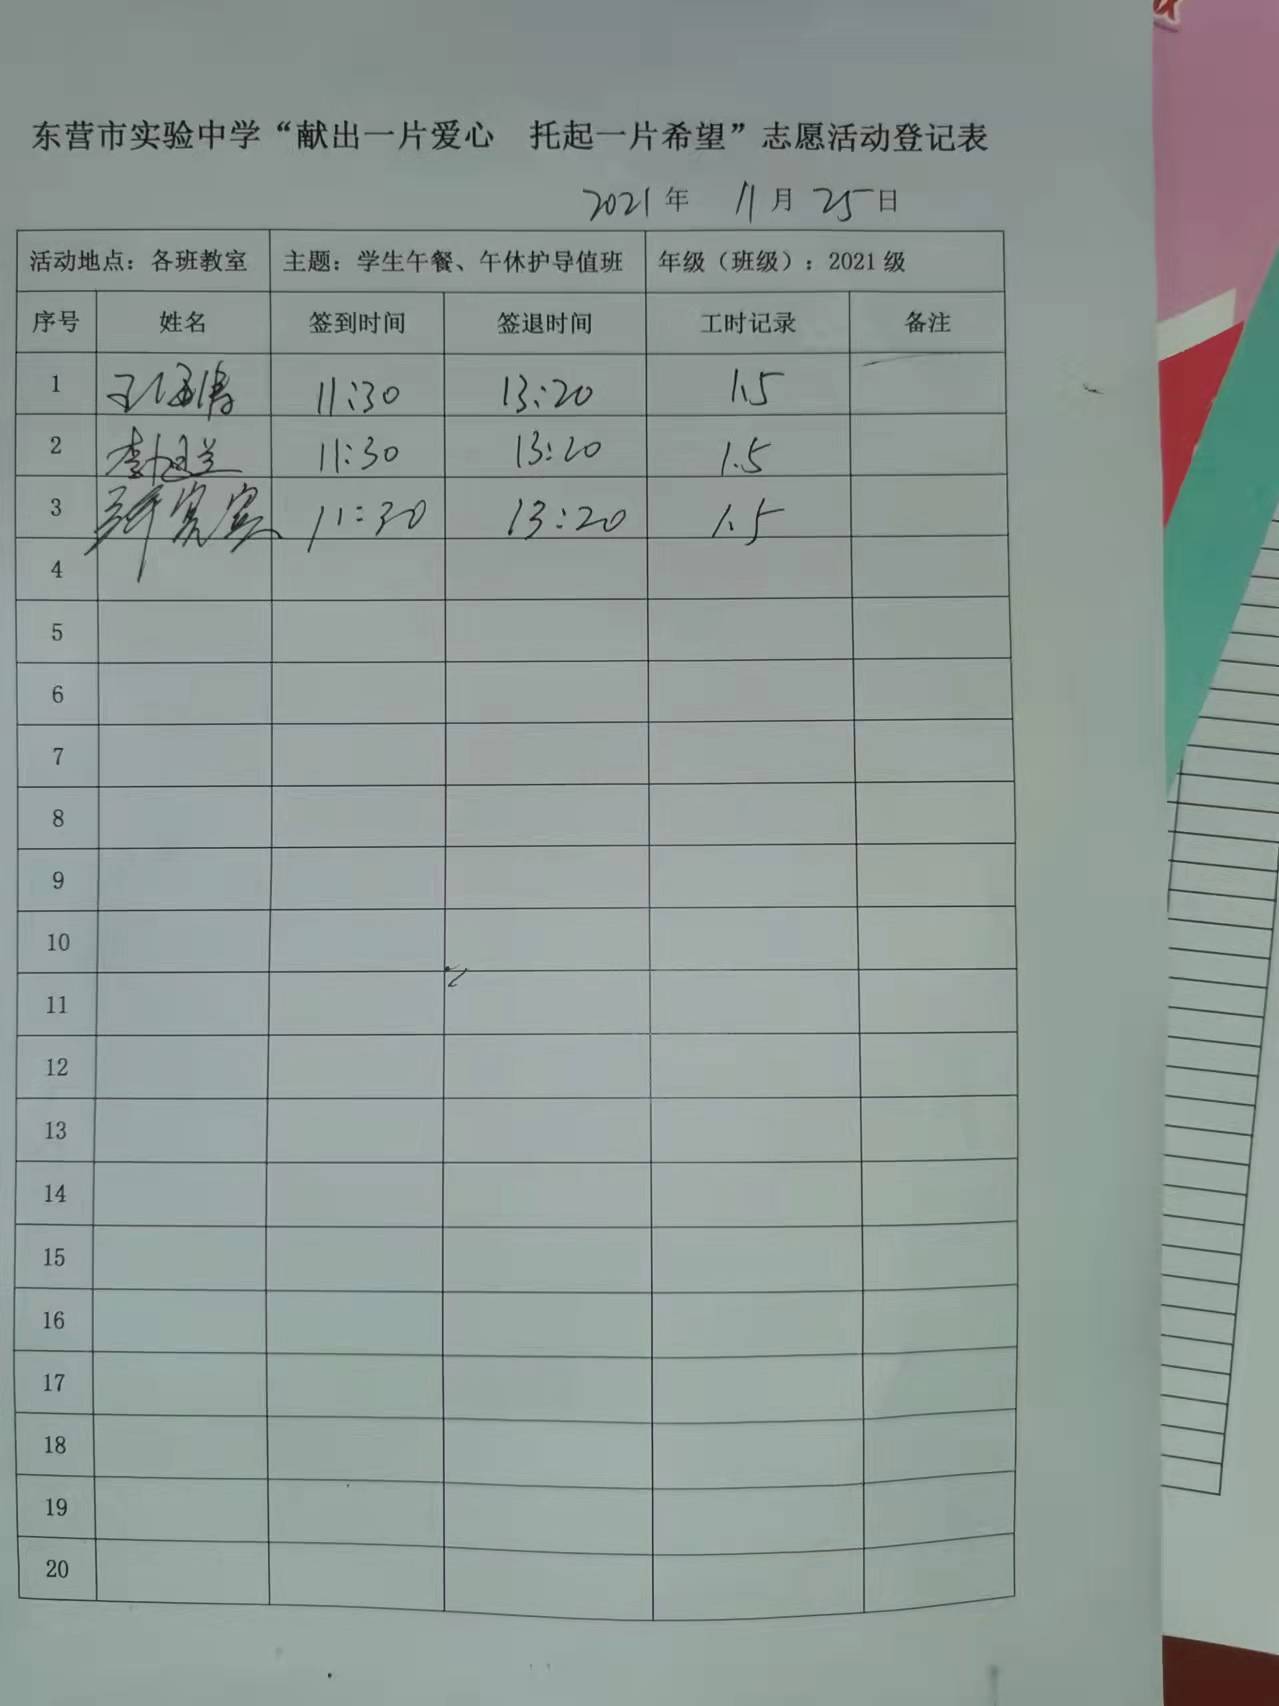 东营市实验中学“献出一片爱心 托起一片希望”志愿活动登记表
2021年 11月 25日
活动地点：各班教室 主题：学生午餐、午休护导值班 年级（班级）：2021级
序号 姓名 签到时间 签退时间 工时记录 备注
1 11:30 13:20 1.5
2 李 11:30 13:20 1.5
3 11:30 13:20 1.5
4
5
6
7
8
9
10
11
12
13
14
15
16
17
18
19
20